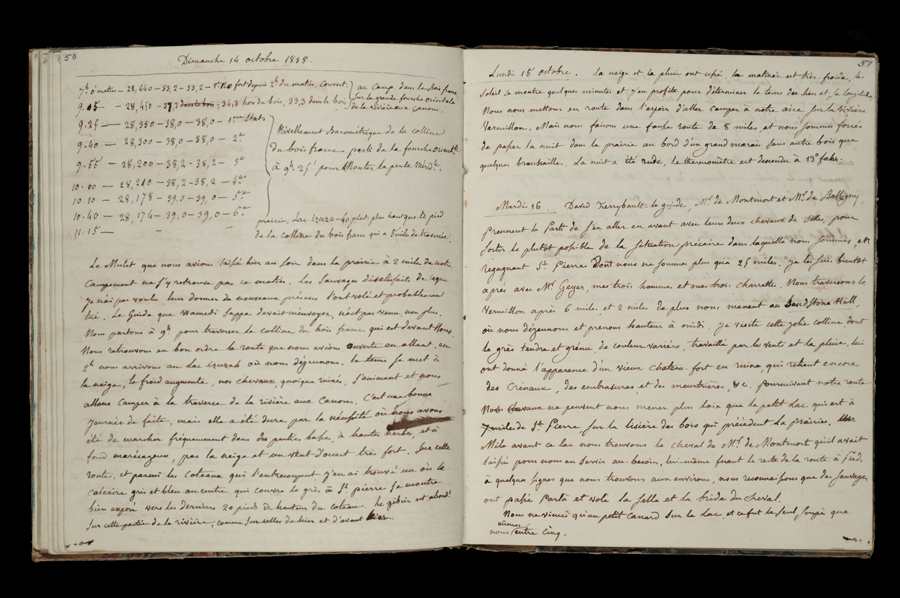 50
Dimanche 14 octobre 1838.
7h du matin – 28,440 – 33,2 – 33,2 – fort depuis 2h du matin. Couvert. au Camp dans le bois franc
9.05 — 28,450 – 34,8 hors du bois, 33,3 dans le bois sur la grande fourche orientale
de la rivière aux Canons.
9.25 — 28,350 – 38,0 – 38,0 – 1ere Stat.
9.40 — 28,300 – 38,0 – 38,0 – 2e
9.55 — 28,200 – 38,2 – 38,2 – 3e
10.00 — 28,210 – 38,2 – 38,2 – 4e
10.10 — 28,178 – 39,0 – 39,0 – 5e
10.40 — 28,174 – 39,0 – 39,0 – 6e
11.15 —
Nivellement Barométrique de la colline
du bois franc, parti de la fourche orient.
à 9h 25' pour Monter la pente Mérid.
prairie. Lac 40 pieds plus haut que le pied
de la colline du bois franc qui a 5 mile de traversée.
Le Mulet que nous avions laissé hier au soir dans la prairie à 2 mile de notre
Campement ne s'y retrouve pas ce matin. Les Sauvages disatisfaits de ce que
je n'ai pas voulu leur donner de nouveaux présens l'ont volé et probablement
tué. Le Guide que Wamedi Sappa devait m'envoyer, n'est pas venu non plus.
Nous partons à 9h pour traverser la colline du bois franc qui est devant nous.
Nous retrouvons en bon ordre la route que nous avions ouverte en allant, en
2h nous arrivons au lac où nous déjeunons. le tems se met à
la neige, le froid augmente, nos chevaux, quoique ruinés, s'animent et nous
allons camper à la traverse de la rivière aux Canons. C'est une bonne
journée de faite, mais elle a été dure par la nécessité où nous avons
été de marcher fréquemment dans des parties basses, à hautes herbes, et à
fond marécageux, par la neige et un vent d'ouest très fort. Sur cette
route, et parmi les coteaux qui s'entrecoupent j'en ai trouvé un où le
calcaire gris et bleu au centre, qui couvre le grès à St. pierre se montre
bien encore vers les derniers 20 pieds de hauteur du coteau. Le gibier est abondt
sur cette partie de la rivière, comme sur celles de hier et d'avant hier.
51
Lundi 15 octobre. La neige et la pluie ont cessé la matinée est très froide, le
Soleil se montre quelques minutes et j'en profite pour déterminer le tems du lieu, et la longitude.
Nous nous mettons en route dans l'espoir d'aller camper à notre aise sur la rivière
Vermillon. Mais nous faisons une fausse route de 8 miles et nous sommes forcés
de passer la nuit dans la prairie au bord d'un grand marais sans autre bois que
quelques broussailles. La nuit a été rude, le thermomètre est descendu à 13° fahr.
Mardi 16. David Ferrybault le guide, Mr. de Montmort et Mr. de Belligny,
prennent le parti de s'en aller en avant avec leurs deux chevaux de selle, pour
sortir le plutôt possible de la situation précaire dans laquelle nous sommes, et
regagnent St. Pierre dont nous ne sommes plus qu'à 25 miles. Je les suis bientôt
après avec Mr. Geyer, mes trois hommes et mes trois charrettes. Nous traversons le
Vermillon après 6 mile et 2 mile de plus nous mènent au Sandstone Hill,
où nous déjeunons et prenons hauteur à midi. Je visite cette jolie colline dont
le grès tendre et grénu de couleur variées, travaillé par le vent et la pluie, lui
ont donné l'apparence d'un vieux chateau fort en ruine, qui retient encore
des Créneaux, des embrasures et des meurtrières, &c. poursuivant notre route
Nos chevaux ne peuvent nous mener plus loin que le petit Lac qui est à
7 mile de St. Pierre, sur la lisière des bois qui précèdent la prairie. Un
Mile avant ce lac nous trouvons le cheval de Mr. de Montmort qu'il avait
laissé pour nous en servir au besoin, lui-même fesant le reste de la route à pied.
à quelques signes que nous trouvons aux environs, nous reconnaissons que des Sauvages
ont passé par là et volé la selle et la bride du cheval.
Nous ne vîmes qu'un petit canard sur le Lac, et ce fut le seul soupé que
nous eûmes entre cinq.